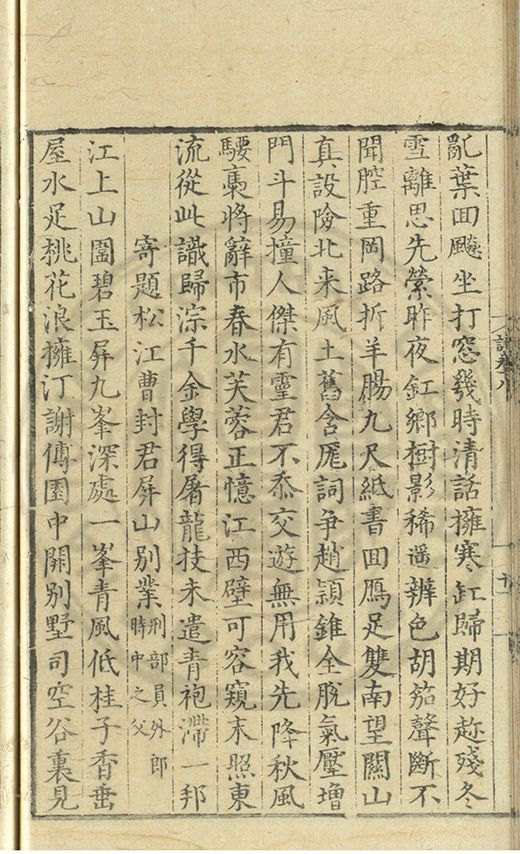 亂葉回颷坐打窓幾時清話擁寒缸歸期好趂殘冬
雪離思先縈昨夜釭鄉樹影稀遥辨色胡笳聲斷不
聞腔重岡路折羊膓九尺紙書回鴈足雙南望關山
真設險北来風土舊含厖詞争趙穎錐全脫氣壓增
門斗易撞人傑有靈君不忝交遊無用我先降秋風
騕褭將辭市春水芙蓉正憶江西壁可容窺末照東
流從此識歸淙千金學得屠龍技未遣青袍滯一邦
寄題松江曹封君屏山别業刑部員外郎時中之父
江上山圍碧玉屏九峯深處一峯青風低桂子香垂
屋水足桃花浪擁汀謝傅園中開别墅司空谷裏見